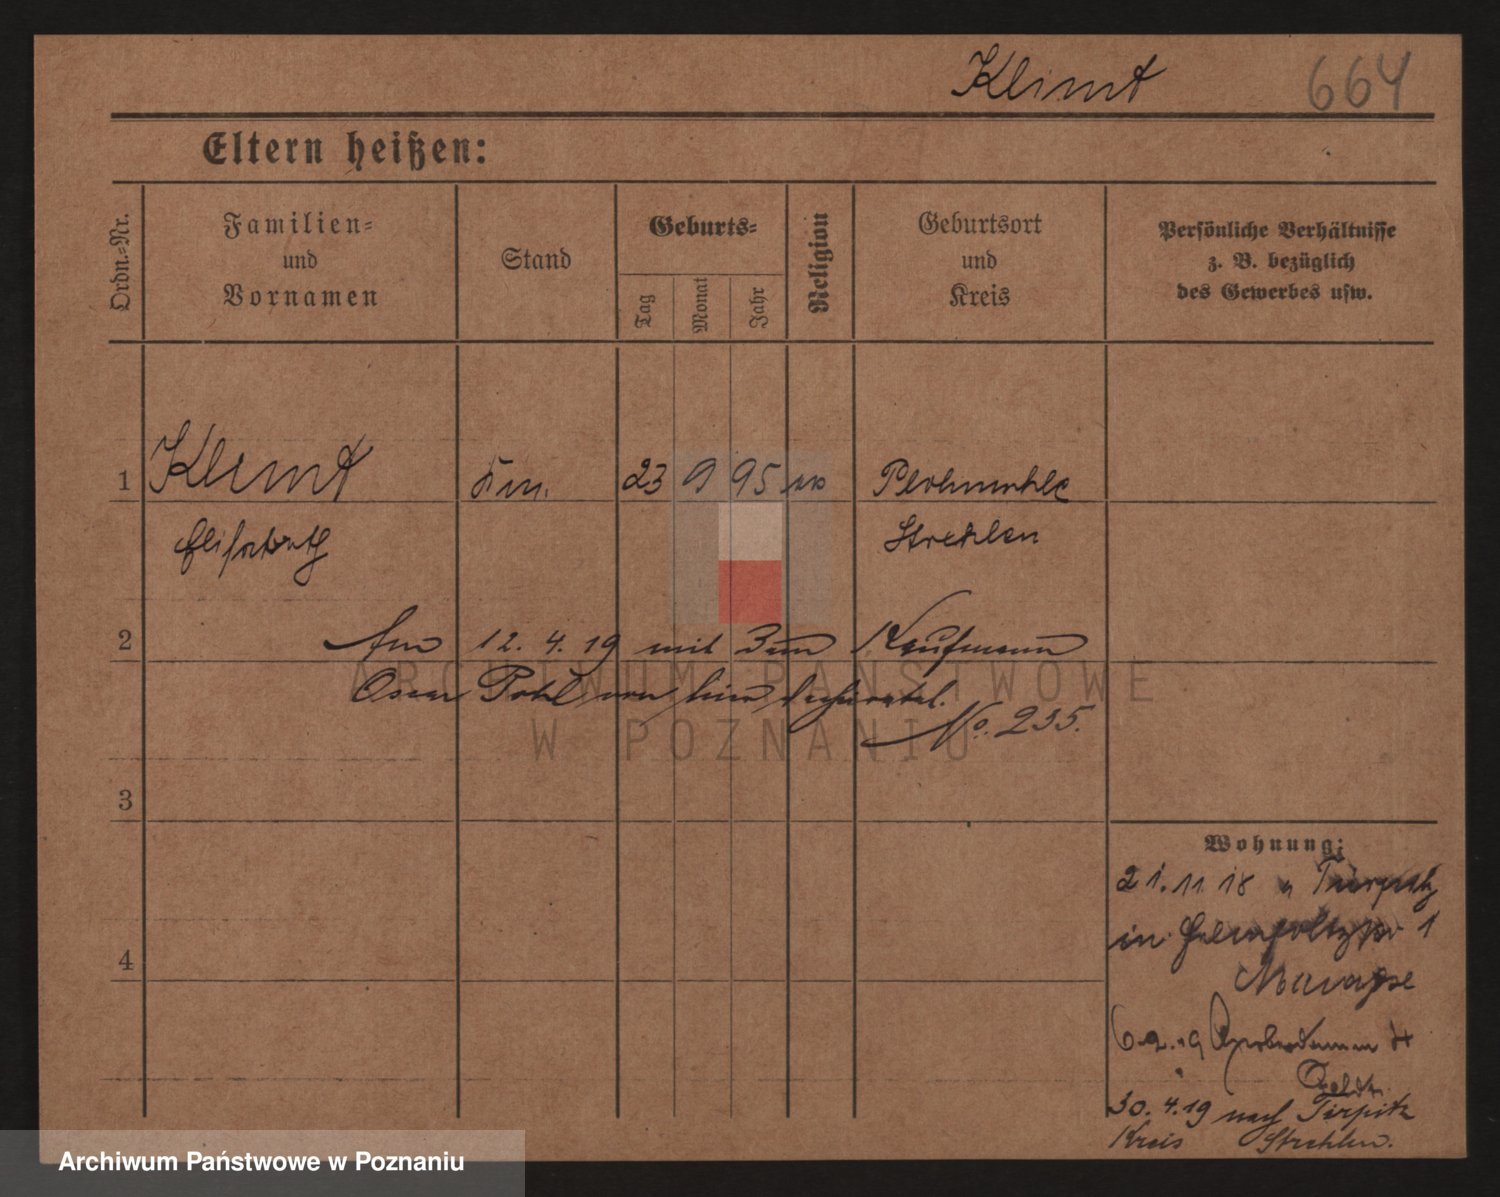 Klimt 664
Eltern heißen:
Ordn.-Nr.
Familien-
und
Vornamen
Stand
Geburts-
Tag
Monat
Jahr
Religion
Geburtsort
und
Kreis
Persönliche Verhältnisse
z. B. bezüglich
des Gewerbes usw.
1 Klimt 23 9 95 Plohmühle
Elisabeth Strehlen
2 Am 12. 4. 19 mit dem Kaufmann
Oscar Pohl von hier
No. 235.
ARCHIWUM PAŃSTWOWE
W POZNANIU
3
4
Wohnung:
21. 11 18 Tirpitz
in 1
30. 4. 19 nach Tirpitz
Kreis Strehlen.
Archiwum Państwowe w Poznaniu